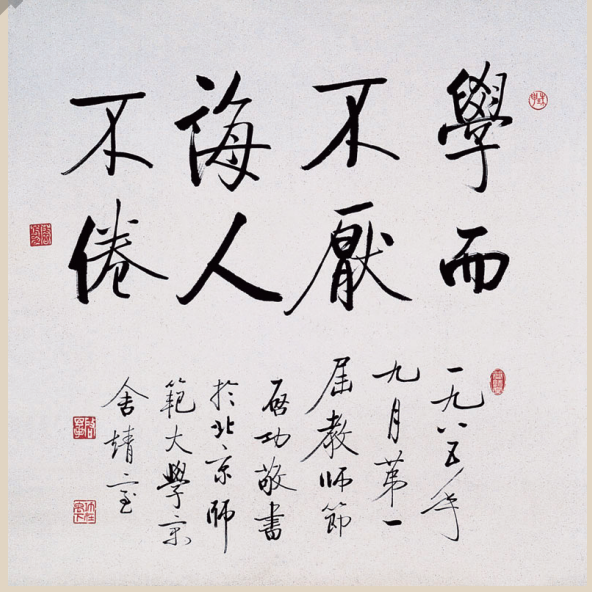 學而
不厭
誨人
不倦
一九八五年
九月第一
屆教師節
啟功敬書
於北京師
範大學宗
舍靖室